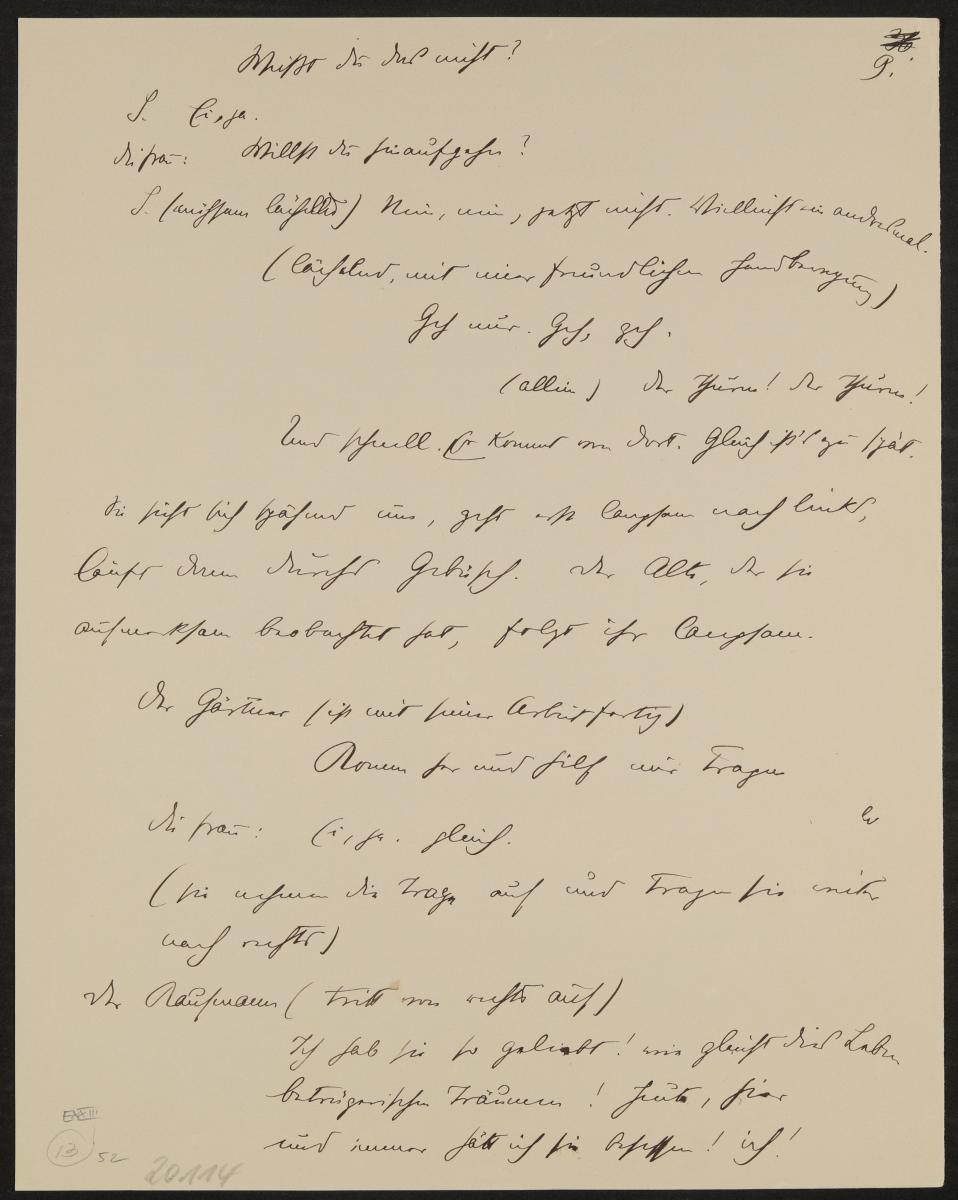 9.
Weißt du das nicht?
S. Ei, ja.
Die Frau: Willst du hinaufgehn?
S. (mühsam lächelnd) Nein, nein, jetzt nicht. Vielleicht ein andresmal.
(lächelnd, mit einer freundlichen Handbewegung)
Geh nur. Geh, geh.
(allein) Der Thurm! Der Thurm!
Und schnell. Er kommt von dort. Gleich ist's zu spät.
Sie sieht sich spähend um, geht erst langsam nach links,
läuft dann durchs Gebüsch. Der Alte, der sie
aufmerksam beobachtet hat, folgt ihr langsam.
Der Gärtner (ist mit seiner Arbeit fertig)
Komm her und hilf mir tragen
Die Frau: Ei, ja. gleich.
(sie nehmen die Trage auf und tragen sie weiter
nach rechts)
Der Kaufmann (tritt von rechts auf)
Ich hab sie so geliebt! wie gleicht dies Leben
betrügerischen Träumen! Heute, hier
und immer hätt ich sie besessen! ich!
E IV
13
52
20114